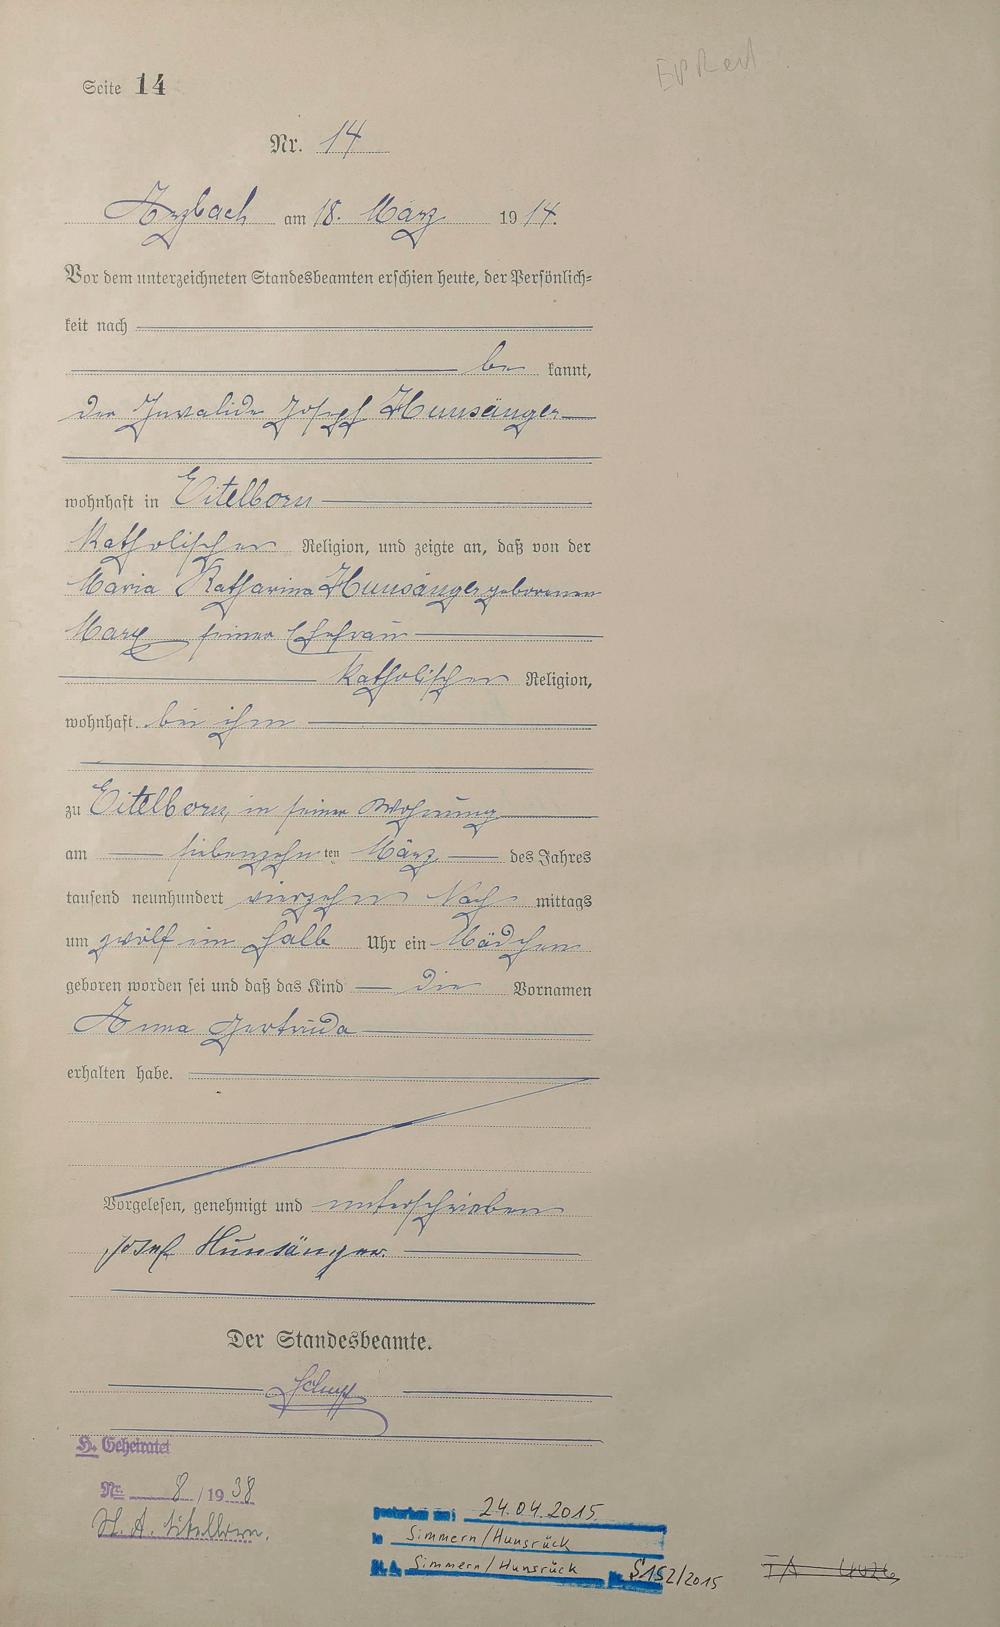 Seite 14
Nr. 14
Arzbach am 18. März 1914.
Vor dem unterzeichneten Standesbeamten erschien heute, der Persönlich=
keit nach
be kannt,
der Invalide Joseph Hunsänger
wohnhaft in Eitelborn
katholischer Religion, und zeigte an, daß von der
Maria Katharina Hunsänger geborenen
Marx seiner Ehefrau
katholischer Religion,
wohnhaft bei ihm
zu Eitelborn, in seiner Wohnung
am siebenzehn ten März des Jahres
tausend neunhundert vierzehn Nach mittags
um zwölf ein halb Uhr ein Mädchen
geboren worden sei und daß das Kind die Vornamen
Anna Gertruda
erhalten habe.
Vorgelesen, genehmigt und unterschrieben
Josef Hunsänger.
Der Standesbeamte.
H. Geheiratet
Nr. 8/1938
St. A. Eitelborn.
gestorben am: 24.04.2015
in Simmern/Hunsrück
St. A. Simmern/Hunsrück Nr. S152/2015